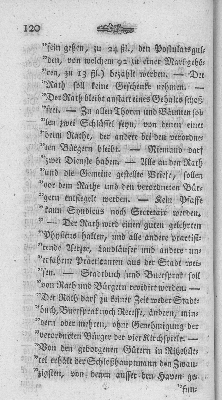 120
"sein geben, zu 24 ßl., den Postulatsgulden,
"den, von welchem 92 zu einer Mark gehören,
"ren, zu 13 ßl.) bezahlt werden. — Der
"Rath soll keine Geschenke nehmen. —
"Der Rath bleibt anstatt eines Gehalts
"frey. — Zu allen Thoren und Bäumen sollen
"len zwey Schlüssel seyn, von denen einer
"beim Rathe, der andere bei den verordneten
"ten Bürgern bleibt. — Niemand darf
"zwei Dienste haben. — Alle an den Rath
"und die Gemeine gestellte Briefe, sollen
"vor dem Rathe und den verordneten Bürgern
"entsiegelt werden. — Kein Pfaffe
"kann Syndicus noch Secretair werden.
"— Der Rath wird einen guten gelehrten
"Physicus halten, und alle andere practisirende
"rende Aerzte, Landläufer und andere
"unerfahrne Practicanten aus der Stadt weisen.
"— Stadtbuch und Buersprak soll
"von Rath und Bürgern revidirt werden —
"Der Rath darf zu keiner Zeit weder Stadtbuch,
"buch, Buersprak noch Recesse, ändern, mindern
"dern oder mehren, ohne Genehmigung der
"verordneten Bürger der vier Kirchspiele. —
"Von den geborgenen Gütern in Ritzebüttel
"tel erhält der Schloßhauptmann den Zwanzigsten,
"zigsten, von denen ausser den Haven ge-